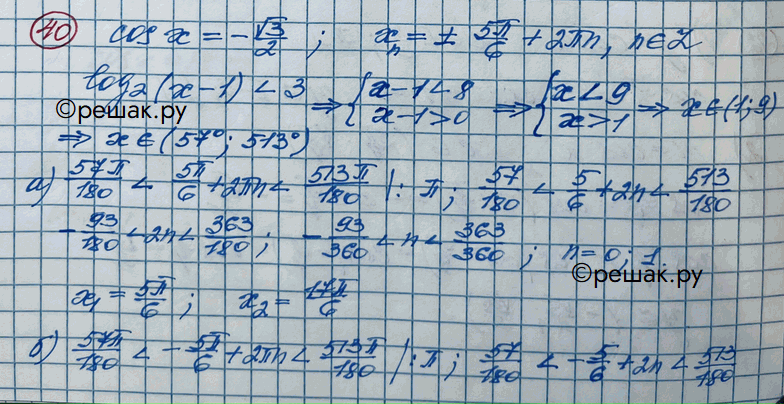 40 cos x = -√3/2 ; xₙ = ± 5π/6 + 2πn, n∈Z
log₂(x-1) < 3 ⇒ { x-1<8 x-1>0 ⇒ { x<9 x>1 ⇒ x∈(1;9)
©решак.ру
⇒ x∈(57°; 513°)
а) 57π/180 < 5π/6 + 2πn < 513π/180 |: π ; 57/180 < 5/6 + 2n < 513/180
-93/180 < 2n < 363/180 ; -93/360 < n < 363/360 ; n = 0; 1.
©решак.ру
x₁ = 5π/6 ; x₂ = 17π/6
б) 57π/180 < -5π/6 + 2πn < 513π/180 |: π ; 57/180 < -5/6 + 2n < 513/180